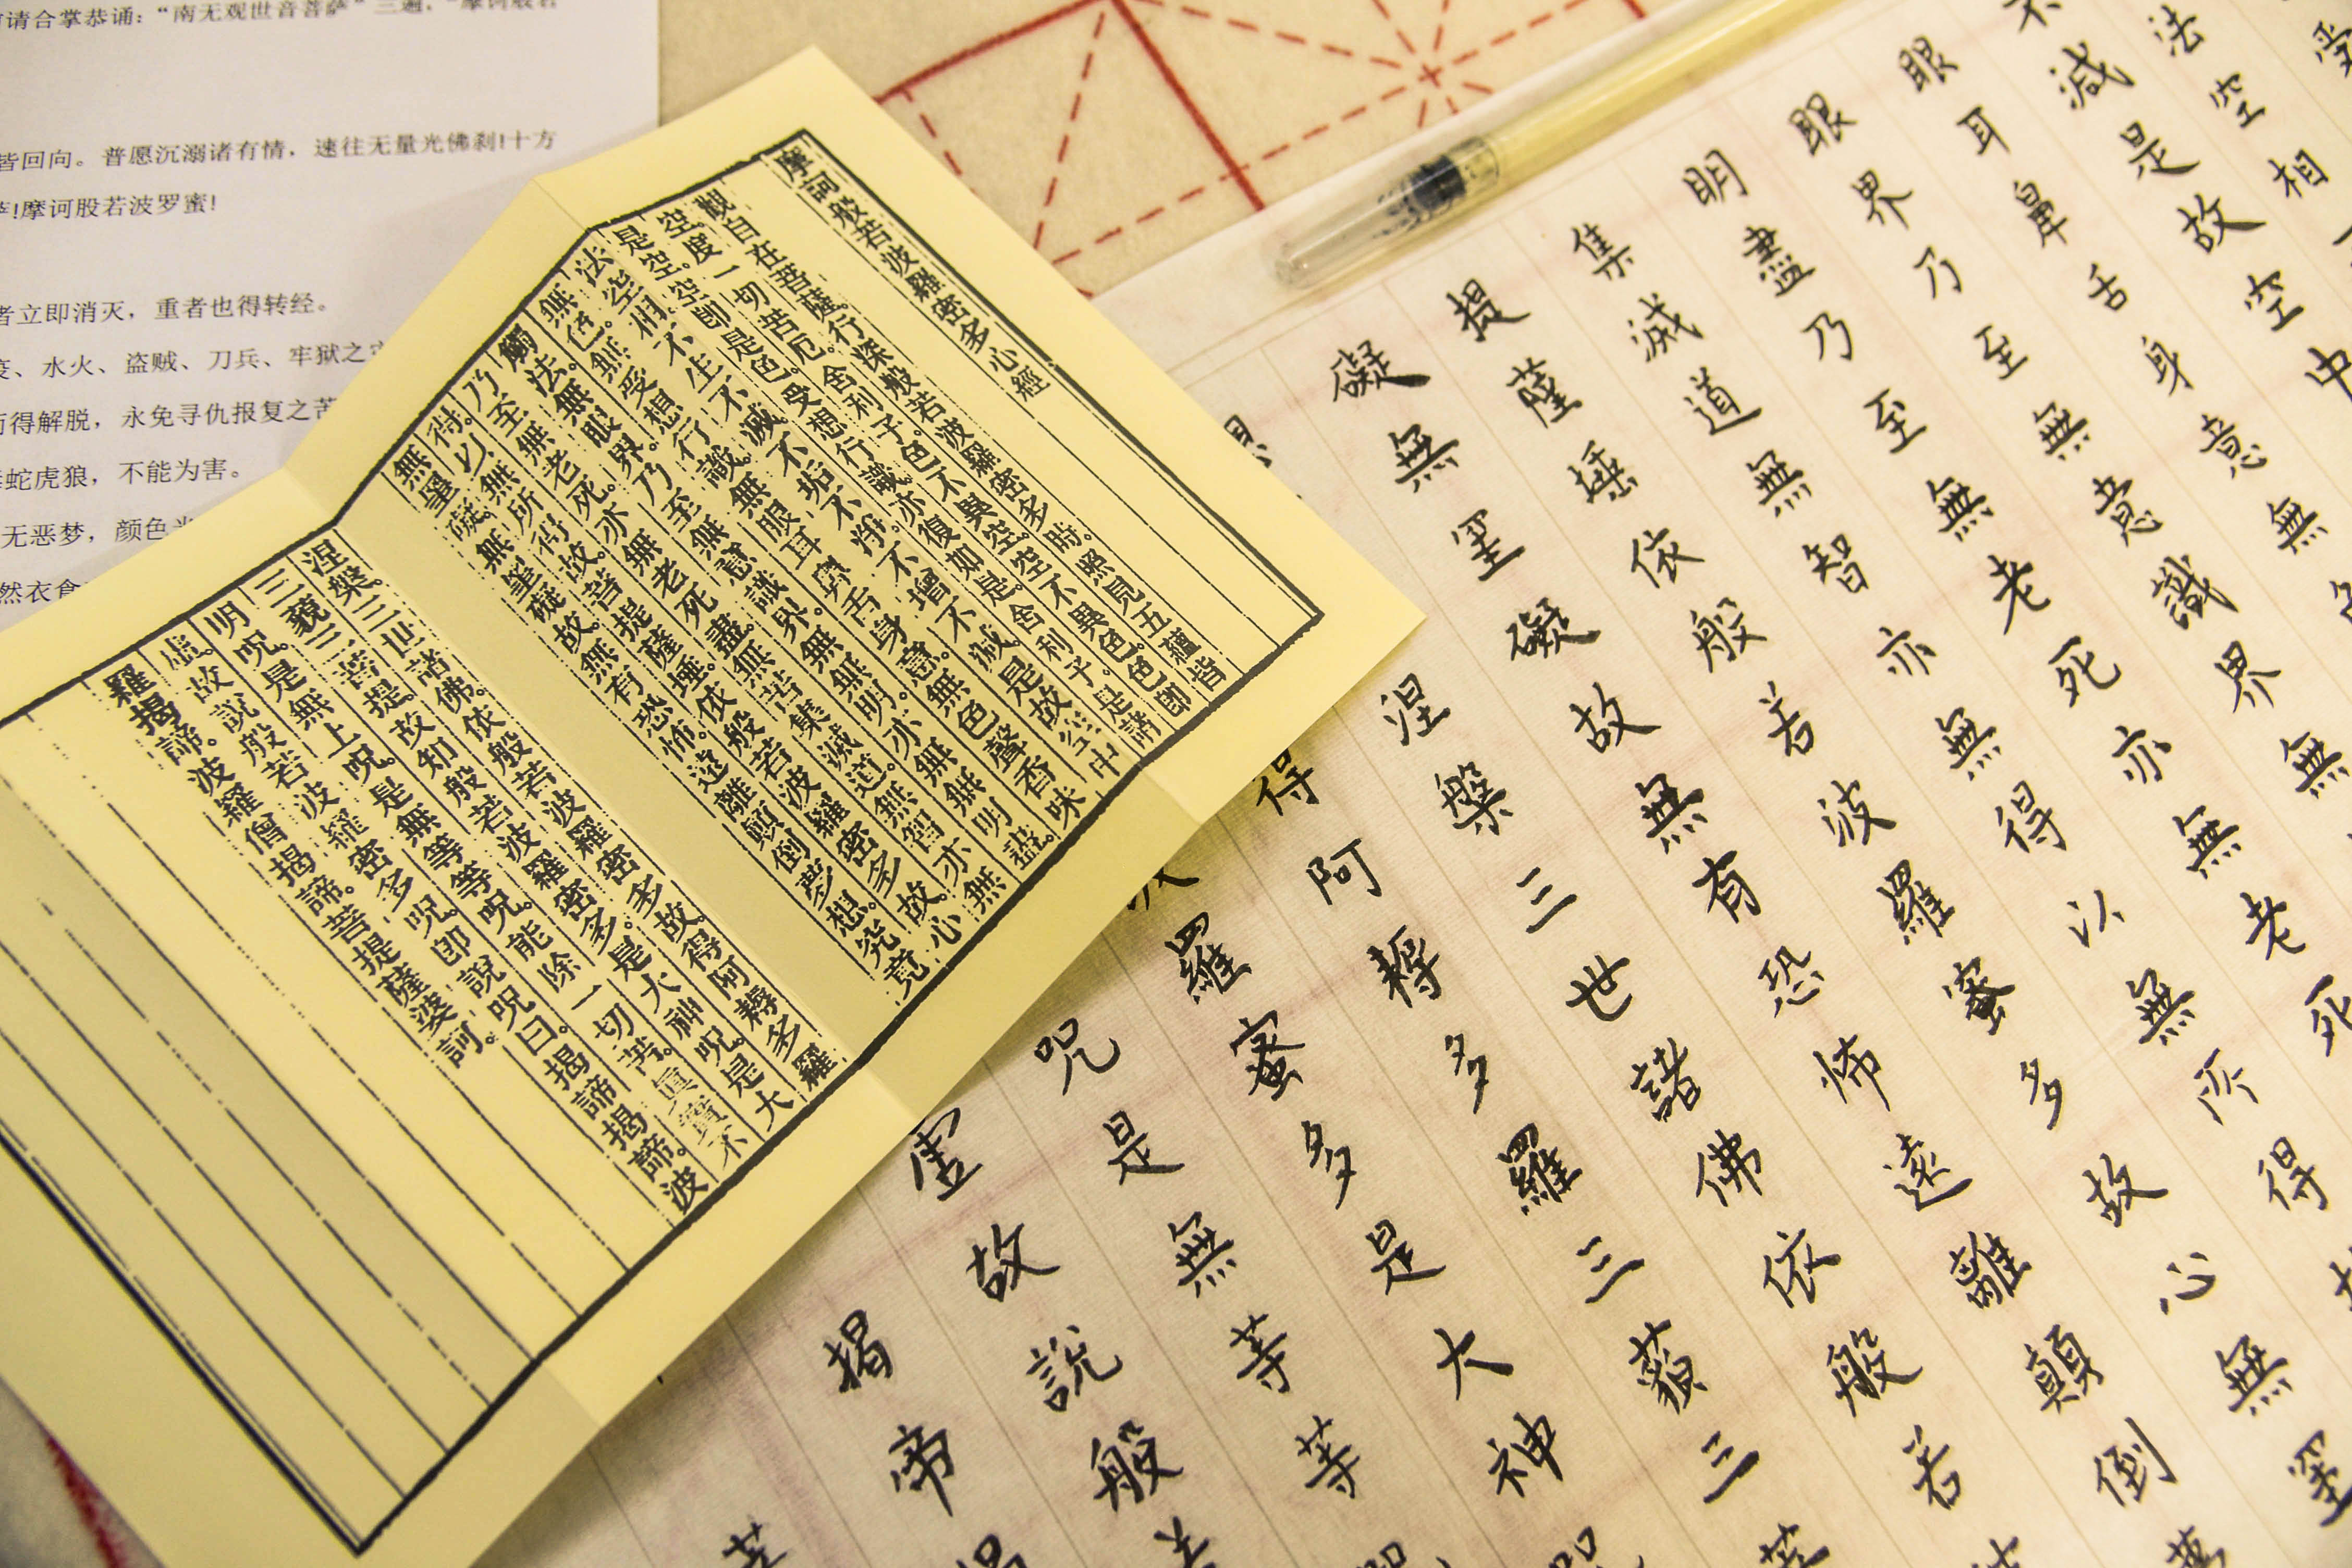 请合掌恭诵：“南无观世音菩萨”三遍，“摩诃般若
皆回向。普愿沉溺诸有情，速往无量光佛刹!十方
!摩诃股若波罗蜜!
者立即消灭，重者也得转经。
、水火、盗贼、刀兵、牢狱之
得解脱，永免寻仇报复之苦
蛇虎狼，不能为害。
无恶梦，颜色
然衣食
摩訶般若波羅密多心經
觀自在菩薩。行深般若波羅密多時。照見五蘊皆
空。度一切苦厄。舍利子。色不異空。空不異色。色即
是空。空即是色。受想行識。亦復如是。舍利子。是諸
法空相。不生不滅。不垢不淨。不增不減。是故空中
無色。無受想行識。無眼耳鼻舌身意。無色聲香味
觸法。無眼界。乃至無意識界。無無明。亦無無明盡。
乃至無老死。亦無老死盡。無苦集滅道。無智亦無
得。以無所得故。菩提薩埵。依般若波羅密多故。心
無罣礙。無罣礙故。無有恐怖。遠離顛倒夢想。究竟
涅槃。三世諸佛。依般若波羅密多故。得阿耨多羅
三藐三菩提。故知般若波羅密多。是大神呪。是大
明呪。是無上呪。是無等等呪。能除一切苦。眞實不
虛。故說般若波羅密多呪。即說呪曰。揭諦揭諦。波
羅揭諦。波羅僧揭諦。菩提薩婆訶。
受
法空相
不減是故空中
眼耳鼻舌身意無色
眼界乃至無意識界無
明盡乃至無老死亦無老死
集滅道無智亦無得以無所得
提薩埵依般若波羅蜜多故心無罣
礙無罣礙故無有恐怖遠離顛倒夢
涅槃三世諸佛依般若波
得阿耨多羅三藐三菩
羅蜜多是大神咒
咒是無等等咒
虛故說般若
揭帝揭
菩